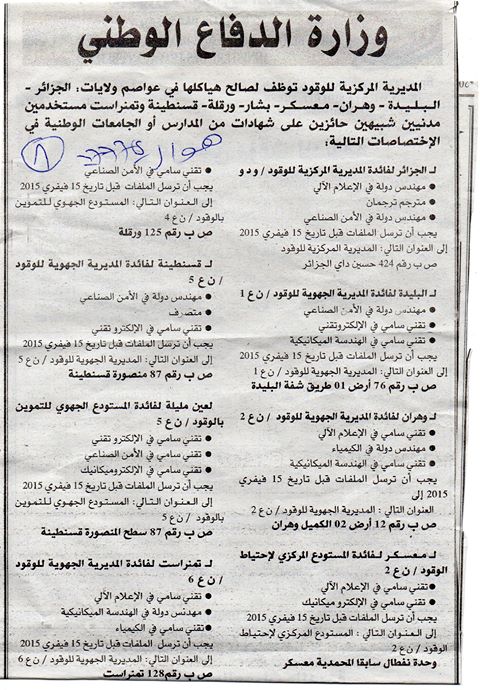 وزارة الدفاع الوطني
المديرية المركزية للوقود توظف لصالح هياكلها في عواصم ولايات: الجزائر -
البليدة - وهران - معسكر - بشار - ورقلة - قسنطينة وتمنراست مستخدمين
مدنيين شبيهين حائزين على شهادات من المدارس أو الجامعات الوطنية في
الإختصاصات التالية:
لـ الجزائر لفائدة المديرية المركزية للوقود / و د و
● مهندس دولة في الإعلام الآلي
● مترجم ترجمان
● مهندس دولة في الأمن الصناعي
يجب أن ترسل الملفات قبل تاريخ 15 فيفري 2015
إلى العنوان التالي: المديرية المركزية للوقود
ص ب رقم 424 حسين داي الجزائر
لـ البليدة لفائدة المديرية الجهوية للوقود / ن ع 1
● تقني سامي في الأمن الصناعي
● تقني سامي في الإلكتروتقني
● تقني سامي في الهندسة الميكانيكية
يجب أن ترسل الملفات قبل تاريخ 15 فيفري 2015
إلى العنوان التالي: المديرية الجهوية للوقود / ن ع 1
ص ب رقم 76 أرض 01 طريق شفة البليدة
لـ وهران لفائدة المديرية الجهوية للوقود / ن ع 2
● تقني سامي في الإعلام الآلي
● مهندس دولة في الكيمياء
● تقني سامي في الهندسة الميكانيكية
يجب أن ترسل الملفات قبل تاريخ 15 فيفري
2015 إلى
العنوان التالي: المديرية الجهوية للوقود / ن ع 2
ص ب رقم 12 أرض 02 الكميل وهران
لـ معسكر لفائدة المستودع المركزي لإحتياط
الوقود / ن ع 2
● تقني سامي في الإعلام الآلي
● تقني سامي في الإلكترو ميكانيك
يجب أن ترسل الملفات قبل تاريخ 15 فيفري 2015
إلى العنوان التالي: المستودع المركزي لإحتياط
الوقود / ن ع 2
وحدة نفطال سابقا المحمدية معسكر
● تقني سامي في الأمن الصناعي
يجب أن ترسل الملفات قبل تاريخ 15 فيفري 2015
إلى العنوان التالي: المستودع الجهوي للتموين
بالوقود / ن ع 4
ص ب رقم 125 ورقلة
لـ قسنطينة لفائدة المديرية الجهوية للوقود
/ ن ع 5
● مهندس دولة في الأمن الصناعي
● متصرف
● تقني سامي في الإلكترو تقني
يجب أن ترسل الملفات قبل تاريخ 15 فيفري 2015
إلى العنوان التالي: المديرية الجهوية للوقود / ن ع 5
ص ب رقم 87 منصورة قسنطينة
لعين مليلة لفائدة المستودع الجهوي للتموين
بالوقود / ن ع 5
● تقني سامي في الإلكترو تقني
● تقني سامي في الأمن الصناعي
● تقني سامي في الإلكتروميكانيك
يجب أن ترسل الملفات قبل تاريخ 15 فيفري 2015
إلى العنوان التالي: المستودع الجهوي للتموين
بالوقود / ن ع 5
ص ب رقم 87 سطح المنصورة قسنطينة
لـ تمنراست لفائدة المديرية الجهوية للوقود
/ ن ع 6
● تقني سامي في الإعلام الآلي
● مهندس دولة في الهندسة الميكانيكية
● تقني سامي في الكيمياء
يجب أن ترسل الملفات قبل تاريخ 15 فيفري 2015
إلى العنوان التالي: المديرية الجهوية للوقود / ن ع 6
ص ب رقم 128 تمنراست